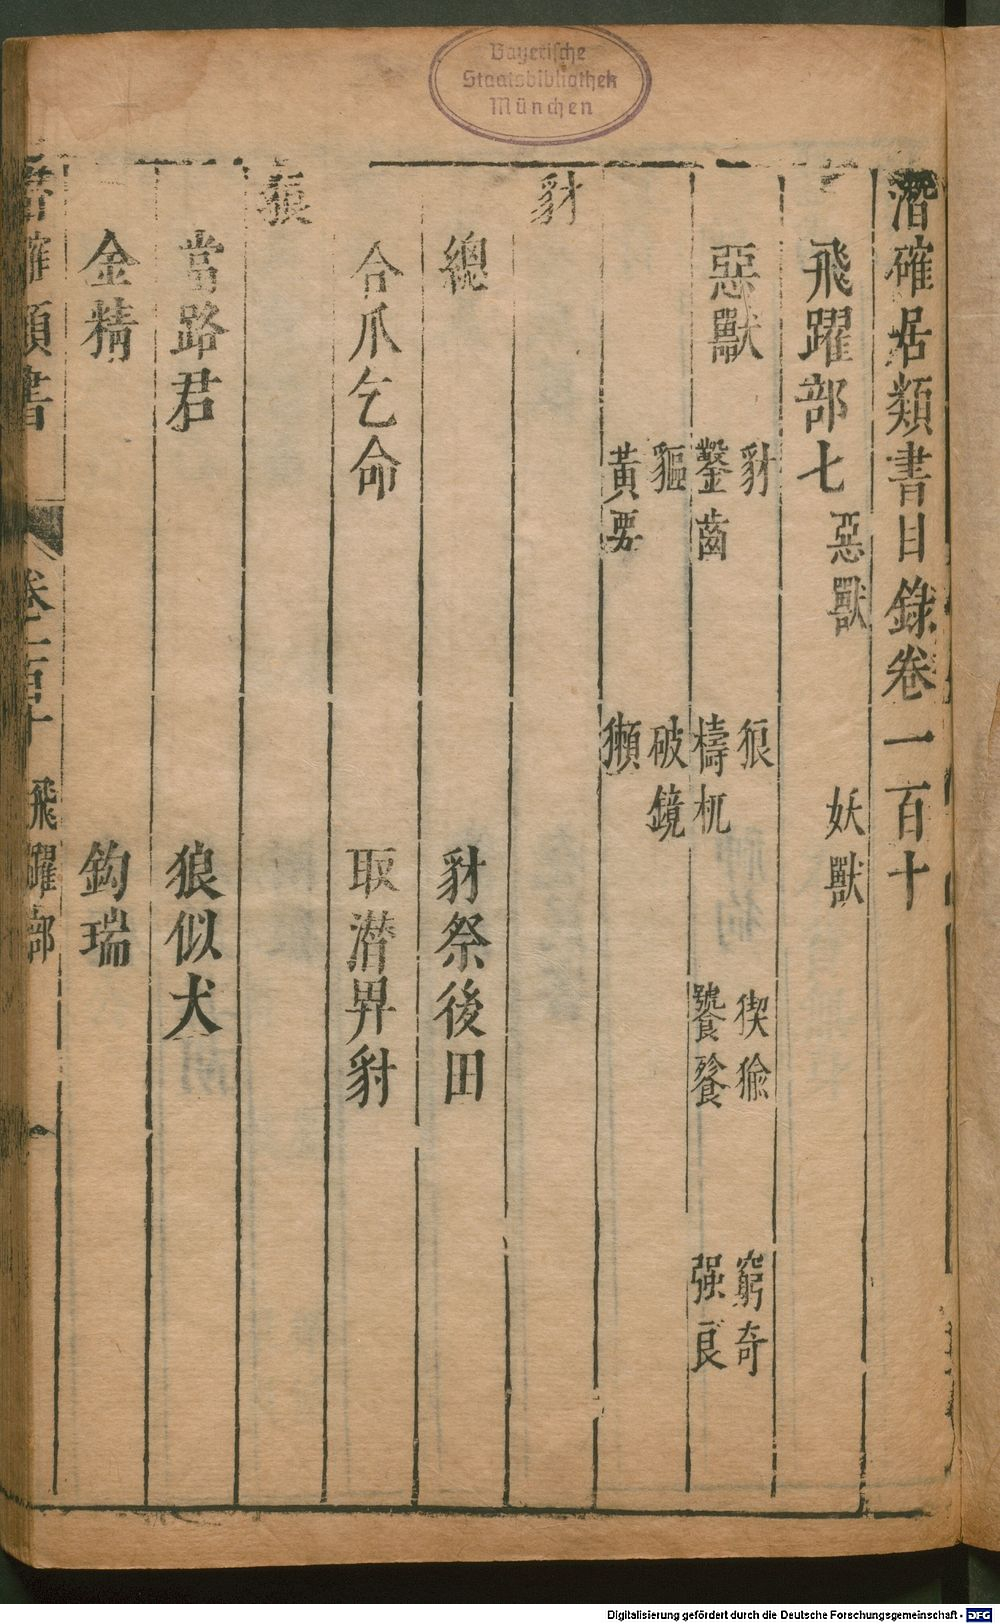 Bayerische
Staatsbibliothek
München
潛確居類書目錄卷一百十
飛躍部七 惡獸 妖獸
惡獸
豺 狼 猰㺄 窮奇
鑿齒 檮杌 饕餮 强良
貙 破鏡
黃要 獺
豺
總 豺祭後田
合爪乞命 取潜畀豺
狼
當路君 狼似犬
金精 鈎瑞
潛確類書 卷一百十 飛躍部 一
Digitalisierung gefördert durch die Deutsche Forschungsgemeinschaft - DFG